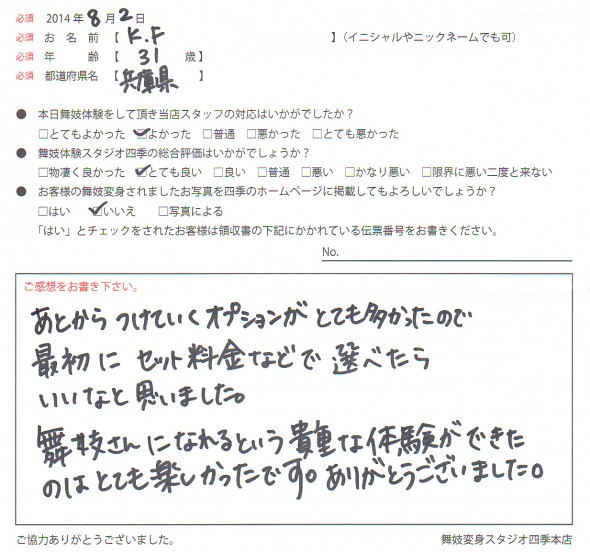 必須 2014年8月2日
必須 お名前【 K.F 】(イニシャルやニックネームでも可)
必須 年齢【 31 歳】
必須 都道府県名【 兵庫県 】
● 本日舞妓体験をして頂き当店スタッフの対応はいかがでしたか?
□とてもよかった ☑よかった □普通 □悪かった □とても悪かった
● 舞妓体験スタジオ四季の総合評価はいかがでしょうか?
□物凄く良かった ☑とても良い □良い □普通 □悪い □かなり悪い □限界に悪い二度と来ない
● お客様の舞妓変身されましたお写真を四季のホームページに掲載してもよろしいでしょうか?
□はい ☑いいえ □写真による
「はい」とチェックをされたお客様は領収書の下記にかかれている伝票番号をお書きください。
No.
ご感想をお書き下さい。
あとから つけていくオプションが とても多かったので
最初に セット料金などで 選べたら
いいなと思いました。
舞妓さんになれるという貴重な体験ができた
のはとても楽しかったです。ありがとうございました。
ご協力ありがとうございました。
舞妓変身スタジオ四季本店